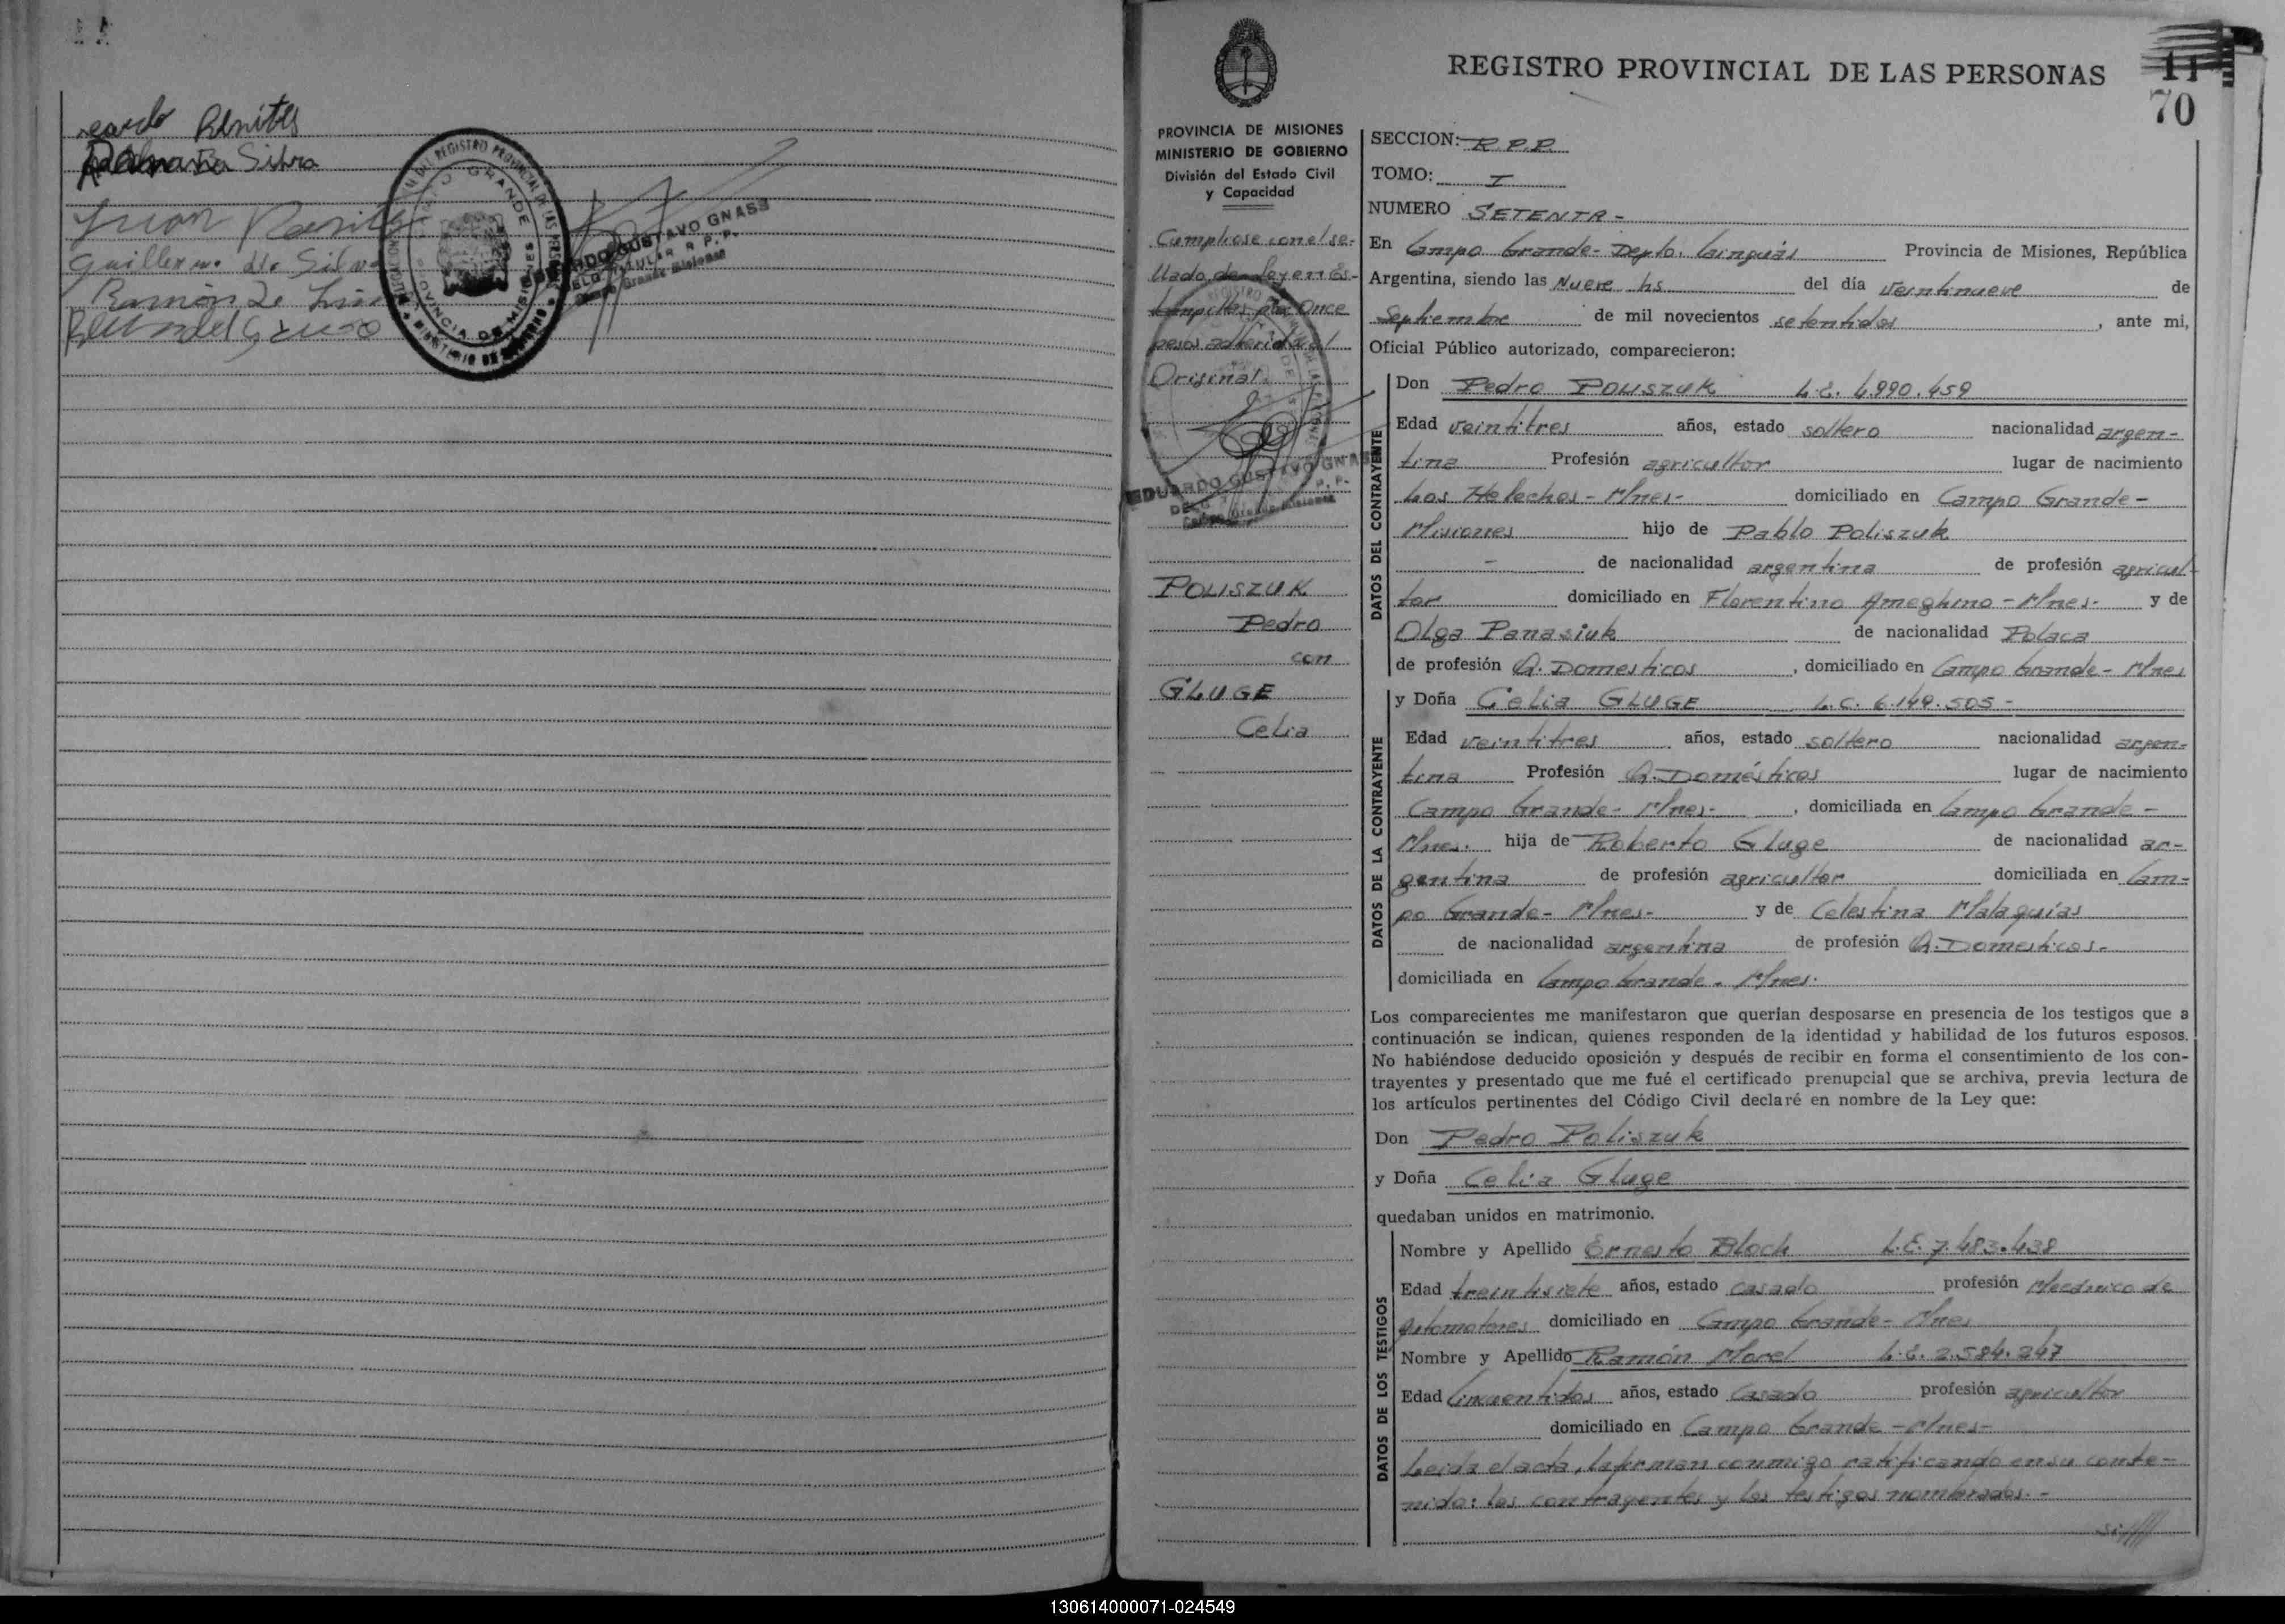 Benites
Silva
Juan
Guillermo da Silva
Ramón de Lima
GRANDE
PROVINCIA DE MISIONES
EDUARDO GUSTAVO GNASS
DELG. TITULAR R. P. P.
Campo Grande Misiones
11
70
REGISTRO PROVINCIAL DE LAS PERSONAS
PROVINCIA DE MISIONES
MINISTERIO DE GOBIERNO
División del Estado Civil
y Capacidad
Cumplióse con el se-
llado de Ley en Es-
tampillas por Once
pesos adherida al
Original.
EDUARDO GUSTAVO GNASS
POLISZUK
Pedro
con
GLUGE
Celia
SECCION: R.P.P.
TOMO: I
NUMERO SETENTA-
En Campo Grande- Depto. Cainguás Provincia de Misiones, República
Argentina, siendo las Nueve hs del día veintinueve de
Septiembre de mil novecientos setentidos, ante mi,
Oficial Público autorizado, comparecieron:
DATOS DEL CONTRAYENTE
Don Pedro POLISZUK L.E. 6.990.459
Edad veintitres años, estado soltero nacionalidad argen-
tina Profesión agricultor lugar de nacimiento
Los Helechos-Mnes- domiciliado en Campo Grande-
Misiones hijo de Pablo Poliszuk
- de nacionalidad argentina de profesión agricul-
tor domiciliado en Florentino Ameghino-Mnes- y de
Olga Panasiuk de nacionalidad Polaca
de profesión Q. Domesticos, domiciliado en Campo Grande- Mnes
DATOS DE LA CONTRAYENTE
y Doña Celia GLUGE L.C. 6.149.505-
Edad veintitres años, estado soltero nacionalidad argen-
tina Profesión Q. Domésticos lugar de nacimiento
Campo Grande- Mnes-, domiciliada en Campo Grande-
Mnes. hija de Roberto Gluge de nacionalidad ar-
gentina de profesión agricultor domiciliada en Cam-
po Grande- Mnes- y de Celestina Malaquías
de nacionalidad argentina de profesión Q. Domesticos-
domiciliada en Campo Grande. Mnes.
Los comparecientes me manifestaron que querían desposarse en presencia de los testigos que a
continuación se indican, quienes responden de la identidad y habilidad de los futuros esposos.
No habiéndose deducido oposición y después de recibir en forma el consentimiento de los con-
trayentes y presentado que me fué el certificado prenupcial que se archiva, previa lectura de
los artículos pertinentes del Código Civil declaré en nombre de la Ley que:
Don Pedro Poliszuk
y Doña Celia Gluge
quedaban unidos en matrimonio.
DATOS DE LOS TESTIGOS
Nombre y Apellido Ernesto Bloch L.E. 7.483.438
Edad treintisiete años, estado casado profesión Mecánico de
Automotores domiciliado en Campo Grande- Mnes
Nombre y Apellido Ramón Morel L.E. 2.584.247
Edad Cincuentidos años, estado Casado profesión agricultor
domiciliado en Campo Grande-Mnes-
Leida el acta, la firman conmigo ratificando en su conte-
nido: los contrayentes y los testigos nombrados.-
130614000071-024549